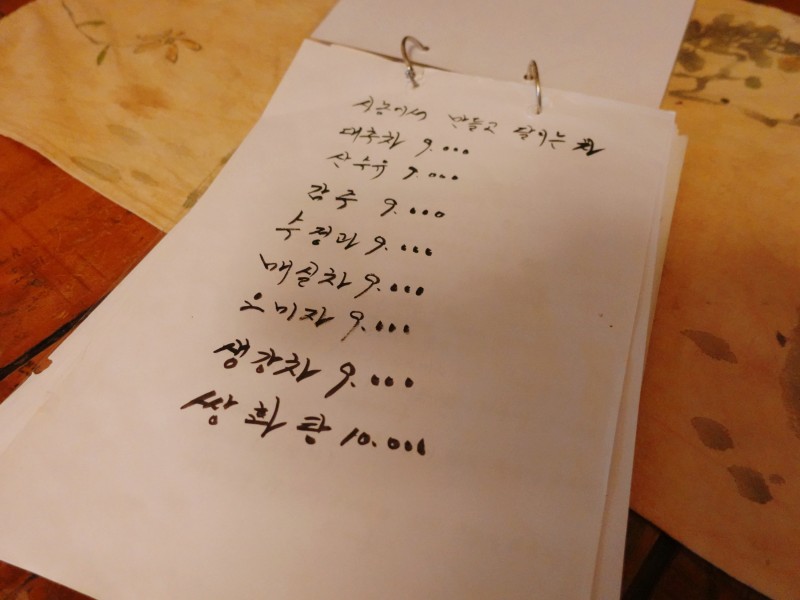 시중에서 만들고 달이는 차
대추차 9.000
산수유 9.000
감주 9.000
수정과 9.000
매실차 9.000
오미자 9.000
생강차 9.000
쌍화탕 10.000